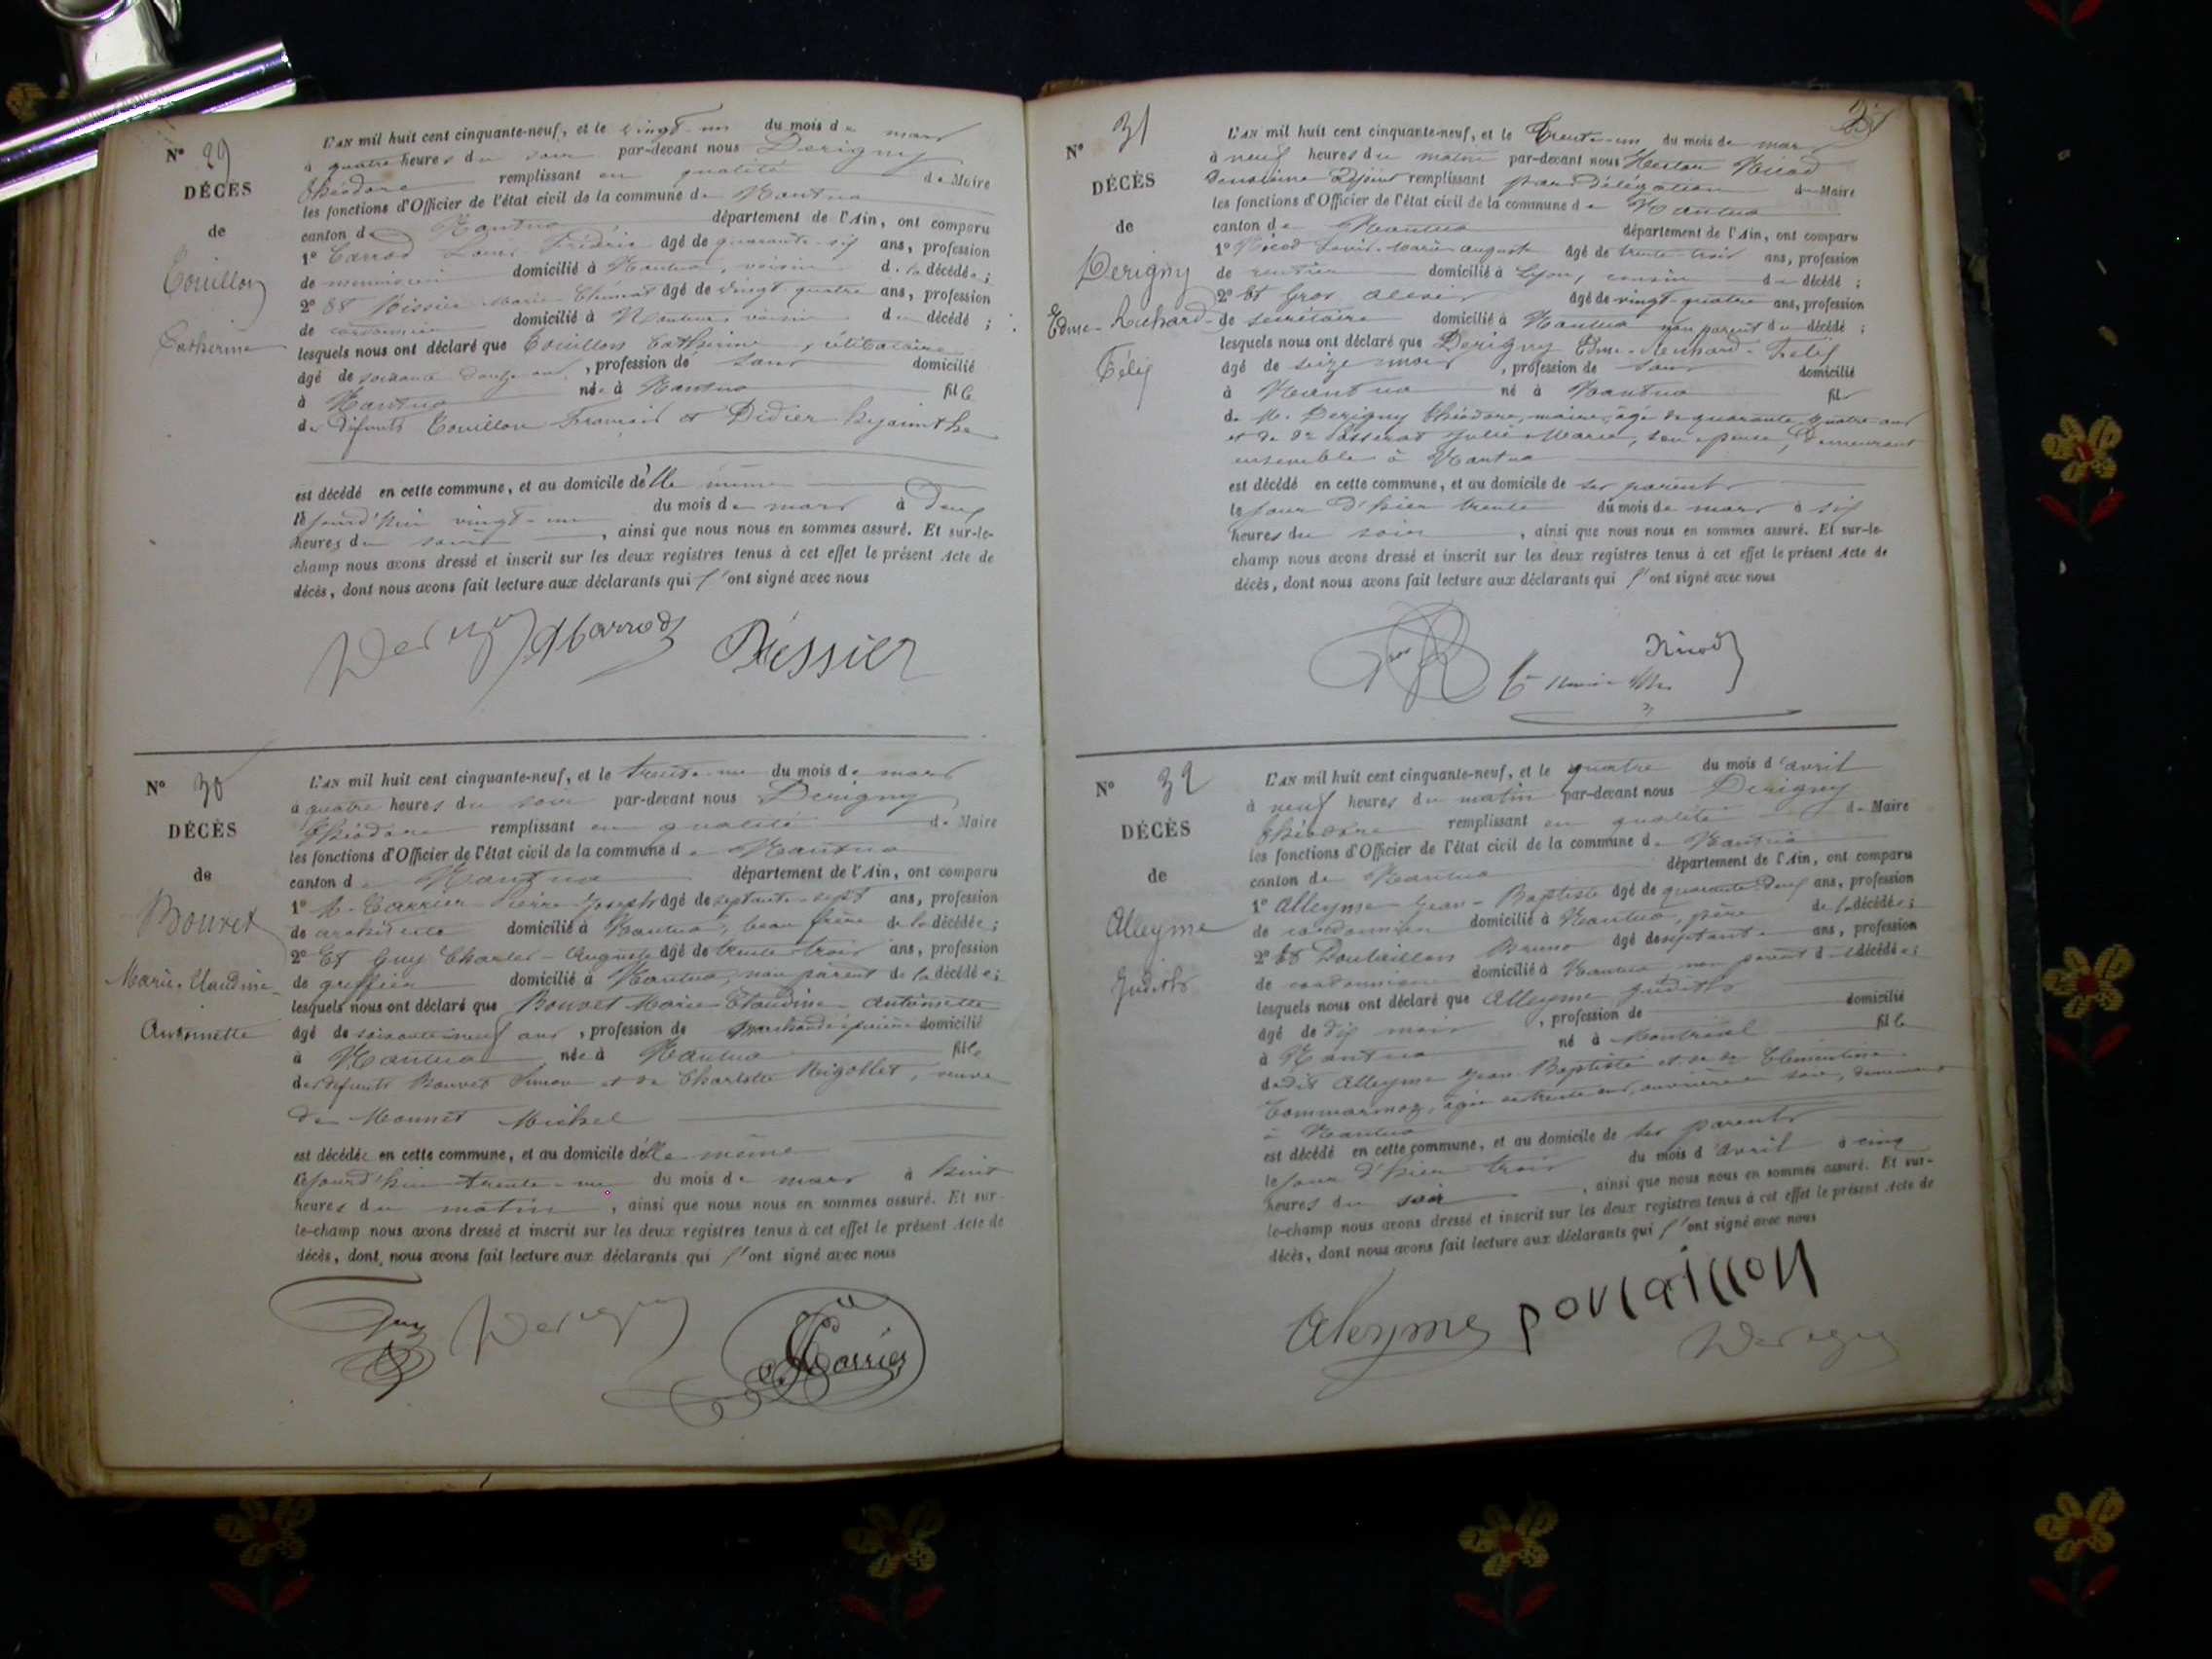 N° 29
DÉCÈS
de
Touillon
Catherine
L'AN mil huit cent cinquante-neuf, et le vingt-un du mois de mars
à quatre heures du soir par-devant nous Derigny
Théodore remplissant en qualité de Maire
les fonctions d'Officier de l'état civil de la commune de Nantua
canton de Nantua département de l'Ain, ont comparu
1° Carrod Louis Frédéric âgé de quarante-six ans, profession
de menuisier domicilié à Nantua, voisin de la décédée ;
2° Et Marie Clément âgé de vingt-quatre ans, profession
de cordonnier domicilié à Nantua, voisin du décédé ;
lesquels nous ont déclaré que Touillon Catherine, célibataire
âgé de soixante douze ans, profession de sans domicilié
à Nantua née à Nantua fille
de défunts Touillon François et Didier hyacinthe
est décédé en cette commune, et au domicile d'elle même
le jourd'hui vingt-un du mois de mars à deux
heures du soir, ainsi que nous nous en sommes assuré. Et sur-le-
champ nous avons dressé et inscrit sur les deux registres tenus à cet effet le présent Acte de
décès, dont nous avons fait lecture aux déclarants qui l'ont signé avec nous
Derigny
N° 30
DÉCÈS
de
Bouvet
Marie-Claudine-
Antoinette
L'AN mil huit cent cinquante-neuf, et le trente-un du mois de mars
à quatre heures du soir par-devant nous Derigny
Théodore remplissant en qualité de Maire
les fonctions d'Officier de l'état civil de la commune de Nantua
canton de Nantua département de l'Ain, ont comparu
1° M. Carrier Pierre-Joseph âgé de septante-sept ans, profession
de architecte domicilié à Nantua, beau frère de la décédée ;
2° Et Guy Charles-Auguste âgé de trente-trois ans, profession
de greffier domicilié à Nantua, non parent de la décédée ;
lesquels nous ont déclaré que Bouvet Marie-Claudine-Antoinette
âgé de soixante-neuf ans, profession de marchande épicière domicilié
à Nantua née à Nantua fille
des défunts Bouvet Simon et de Charlotte Nigollet, veuve
de Monnet Michel
est décédée en cette commune, et au domicile d'elle-même
le jourd'hui trente-un du mois de mars à huit
heures du matin, ainsi que nous nous en sommes assuré. Et sur-
le-champ nous avons dressé et inscrit sur les deux registres tenus à cet effet le présent Acte de
décès, dont nous avons fait lecture aux déclarants qui l'ont signé avec nous
Guy Derigny Carrier
N° 31
DÉCÈS
de
Derigny
Edme-Richard-
Félix
L'AN mil huit cent cinquante-neuf, et le trente-un du mois de mars
à neuf heures du matin par-devant nous Nicod
deuxième adjoint remplissant par délégation du Maire
les fonctions d'Officier de l'état civil de la commune de Nantua
canton de Nantua département de l'Ain, ont comparu
1° Nicod Louis-Marie-Auguste âgé de trente-trois ans, profession
de rentier domicilié à Lyon, cousin du décédé ;
2° Et Gros Alexis âgé de vingt-quatre ans, profession
de secrétaire domicilié à Nantua non parent du décédé ;
lesquels nous ont déclaré que Derigny Edme-Richard-Félix
âgé de seize mois, profession de sans domicilié
à Nantua né à Nantua fils
de M. Derigny Théodore, maire, âgé de quarante-quatre ans
et de De Passerat Julie-Marie, son épouse, demeurant
ensemble à Nantua
est décédé en cette commune, et au domicile de ses parents
le jour d'hier trente du mois de mars à six
heures du soir, ainsi que nous nous en sommes assuré. Et sur-le-
champ nous avons dressé et inscrit sur les deux registres tenus à cet effet le présent Acte de
décès, dont nous avons fait lecture aux déclarants qui l'ont signé avec nous
Nicod
N° 32
DÉCÈS
de
Alleyme
Judith
L'AN mil huit cent cinquante-neuf, et le quatre du mois d'avril
à neuf heures du matin par-devant nous Derigny
Théodore remplissant en qualité de Maire
les fonctions d'Officier de l'état civil de la commune de Nantua
canton de Nantua département de l'Ain, ont comparu
1° Alleyme Jean-Baptiste âgé de quarante-deux ans, profession
de cordonnier domicilié à Nantua, père de la décédée ;
2° Et Bruno âgé de septante ans, profession
de cordonnier domicilié à Nantua non parent de la décédée ;
lesquels nous ont déclaré que Alleyme Judith
âgé de dix mois, profession de domicilié
à Nantua né à Montréal fille
de dit Alleyme Jean-Baptiste et de De Clémentine
âgée de trente ans, ouvrière en soie, demeurant
à Nantua
est décédé en cette commune, et au domicile de ses parents
le jour d'hier trois du mois d'avril à cinq
heures du soir, ainsi que nous nous en sommes assuré. Et sur-
le-champ nous avons dressé et inscrit sur les deux registres tenus à cet effet le présent Acte de
décès, dont nous avons fait lecture aux déclarants qui l'ont signé avec nous
Aleyme poulaillon
Derigny